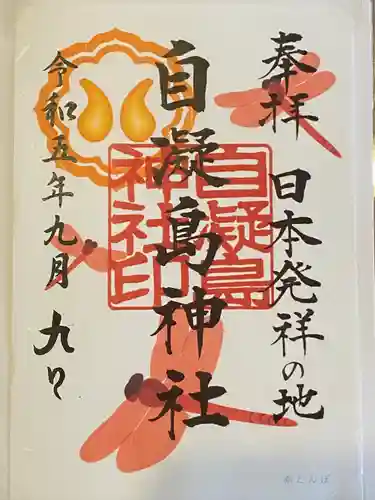 奉拝
日本発祥の地
自凝島神社
自凝島
神社印
令和五年九月九日
あとんぼ